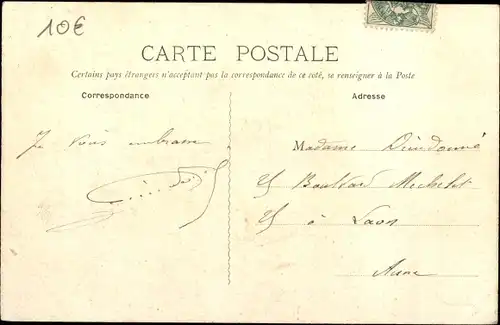 10€
CARTE POSTALE
Certains pays étrangers n'acceptant pas la correspondance de ce coté, se renseigner à la Poste
Correspondance
Adresse
Je vous embrasse
Madame Dieudonné
Boulevard Michelet
à Laon
Aisne